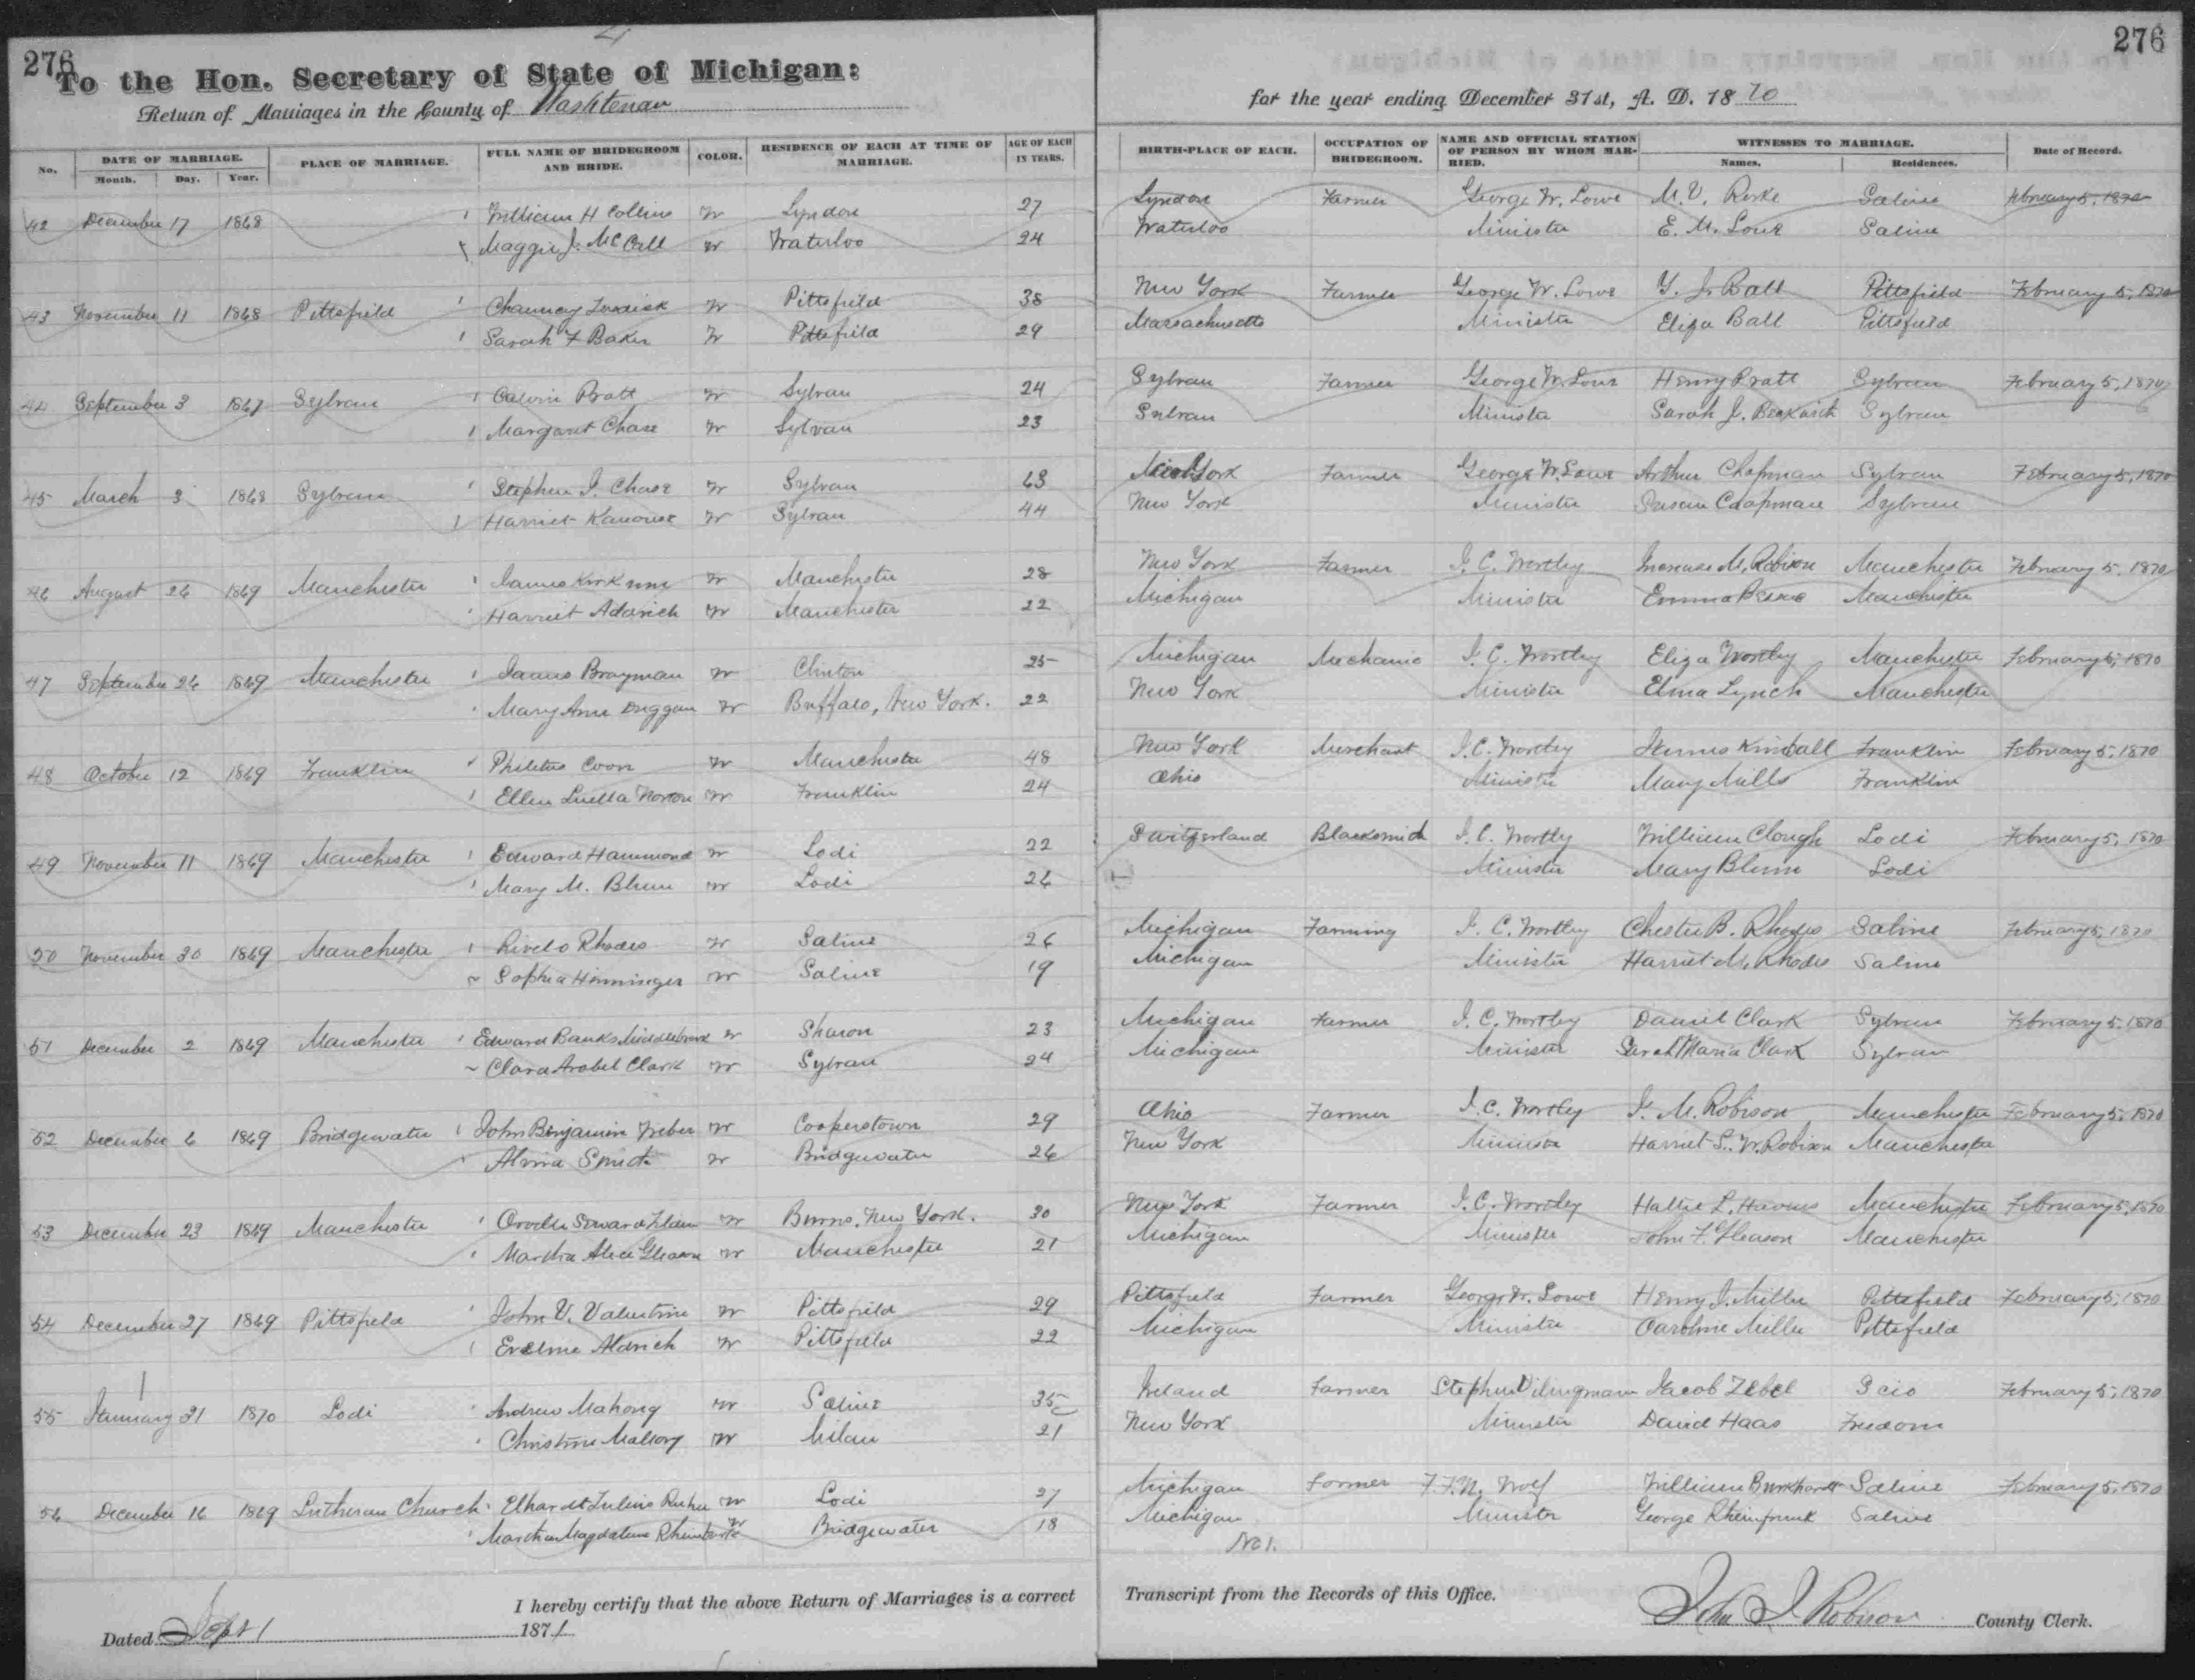 276
276
To the Hon. Secretary of State of Michigan:
Return of Marriages in the County of Washtenaw
for the year ending December 31st, A. D. 1870
No. DATE OF MARRIAGE. Month. Day. Year. PLACE OF MARRIAGE. FULL NAME OF BRIDEGROOM AND BRIDE. COLOR. RESIDENCE OF EACH AT TIME OF MARRIAGE. AGE OF EACH IN YEARS. BIRTH-PLACE OF EACH. OCCUPATION OF BRIDEGROOM. NAME AND OFFICIAL STATION OF PERSON BY WHOM MARRIED. WITNESSES TO MARRIAGE. Names. Residences. Date of Record.
42 December 17 1868 William H Collins W Lyndon 27 Lyndon Farmer George W. Lowe M. V. Rorke Saline February 5, 1870
Maggie J. McCall W Waterloo 24 Waterloo Minister E. M. Lowe Saline
43 November 11 1868 Pittsfield Chauncy W Pittsfield 38 New York Farmer George W. Lowe Y. J. Ball Pittsfield February 5, 1870
Sarah F Baker W Pittsfield 29 Massachusetts Minister Eliza Ball Pittsfield
44 September 3 1867 Sylvan Calvin Pratt W Sylvan 24 Sylvan Farmer George W. Lowe Henry Pratt Sylvan February 5, 1870
Margaret Chase W Sylvan 23 Sylvan Minister Sarah J. Beckwith Sylvan
45 March 3 1868 Sylvan Stephen J. Chase W Sylvan 63 New York Farmer George W. Lowe Arthur Chapman Sylvan February 5, 1870
Harriet Kanouse W Sylvan 44 New York Minister Susan Chapman Sylvan
46 August 26 1869 Manchester James Kirk W Manchester 28 New York Farmer I. C. Wortley Increase M. Robison Manchester February 5, 1870
Harriet Aldrich W Manchester 22 Michigan Minister Emma Manchester
47 September 26 1869 Manchester James Brayman W Clinton 25 Michigan Mechanic I. C. Wortley Eliza Wortley Manchester February 5, 1870
Mary Ann Duggan W Buffalo, New York. 22 New York Minister Elma Lynch Manchester
48 October 12 1869 Franklin Philetus Coon W Manchester 48 New York Merchant I. C. Wortley James Kimball Franklin February 5, 1870
Ellen Luella Norton W Franklin 24 Ohio Minister Mary Mills Franklin
49 November 11 1869 Manchester Edward Hammond W Lodi 22 Switzerland Blacksmith I. C. Wortley William Clough Lodi February 5, 1870
Mary M. Blum W Lodi 26 Minister Mary Blum Lodi
50 November 30 1869 Manchester Rivelo Rhodes W Saline 26 Michigan Farming I. C. Wortley Chester B. Rhodes Saline February 5, 1870
Sophia Himminger W Saline 19 Michigan Minister Harriet M. Rhodes Saline
51 December 2 1869 Manchester Edward Banks Middlebrook W Sharon 23 Michigan Farmer I. C. Wortley Daniel Clark Sylvan February 5, 1870
Clara Arabel Clark W Sylvan 24 Michigan Minister Sarah Maria Clark Sylvan
52 December 6 1869 Bridgewater John Benjamin Weber W Cooperstown 29 Ohio Farmer I. C. Wortley I. M. Robison Manchester February 5, 1870
Almira Smith W Bridgewater 26 New York Minister Harriet S. W. Robison Manchester
53 December 23 1869 Manchester Seward W Burns, New York. 30 New York Farmer I. C. Wortley Hattie L. Manchester February 5, 1870
Martha Alice Gleason W Manchester 21 Michigan Minister John F. Gleason Manchester
54 December 27 1869 Pittsfield John V. Valentine W Pittsfield 29 Pittsfield Farmer George W. Lowe Henry J. Miller Pittsfield February 5, 1870
Eveline Aldrich W Pittsfield 22 Michigan Minister Caroline Miller Pittsfield
55 January 31 1870 Lodi Andrew Mahony W Saline 35 Ireland Farmer Stephen Klingmann Jacob Zebel Scio February 5, 1870
Christine Mallory W Milan 21 New York Minister David Haas Freedom
56 December 16 1869 Lutheran Church Elhardt Julius W Lodi 27 Michigan Farmer F. F. N. Wolf William Burkhardt Saline February 5, 1870
Martha Magdalene W Bridgewater 18 Michigan Minister George Rheinfrank Saline
No 1.
I hereby certify that the above Return of Marriages is a correct Transcript from the Records of this Office.
Dated Sept 1 1871 John J. Robison County Clerk.